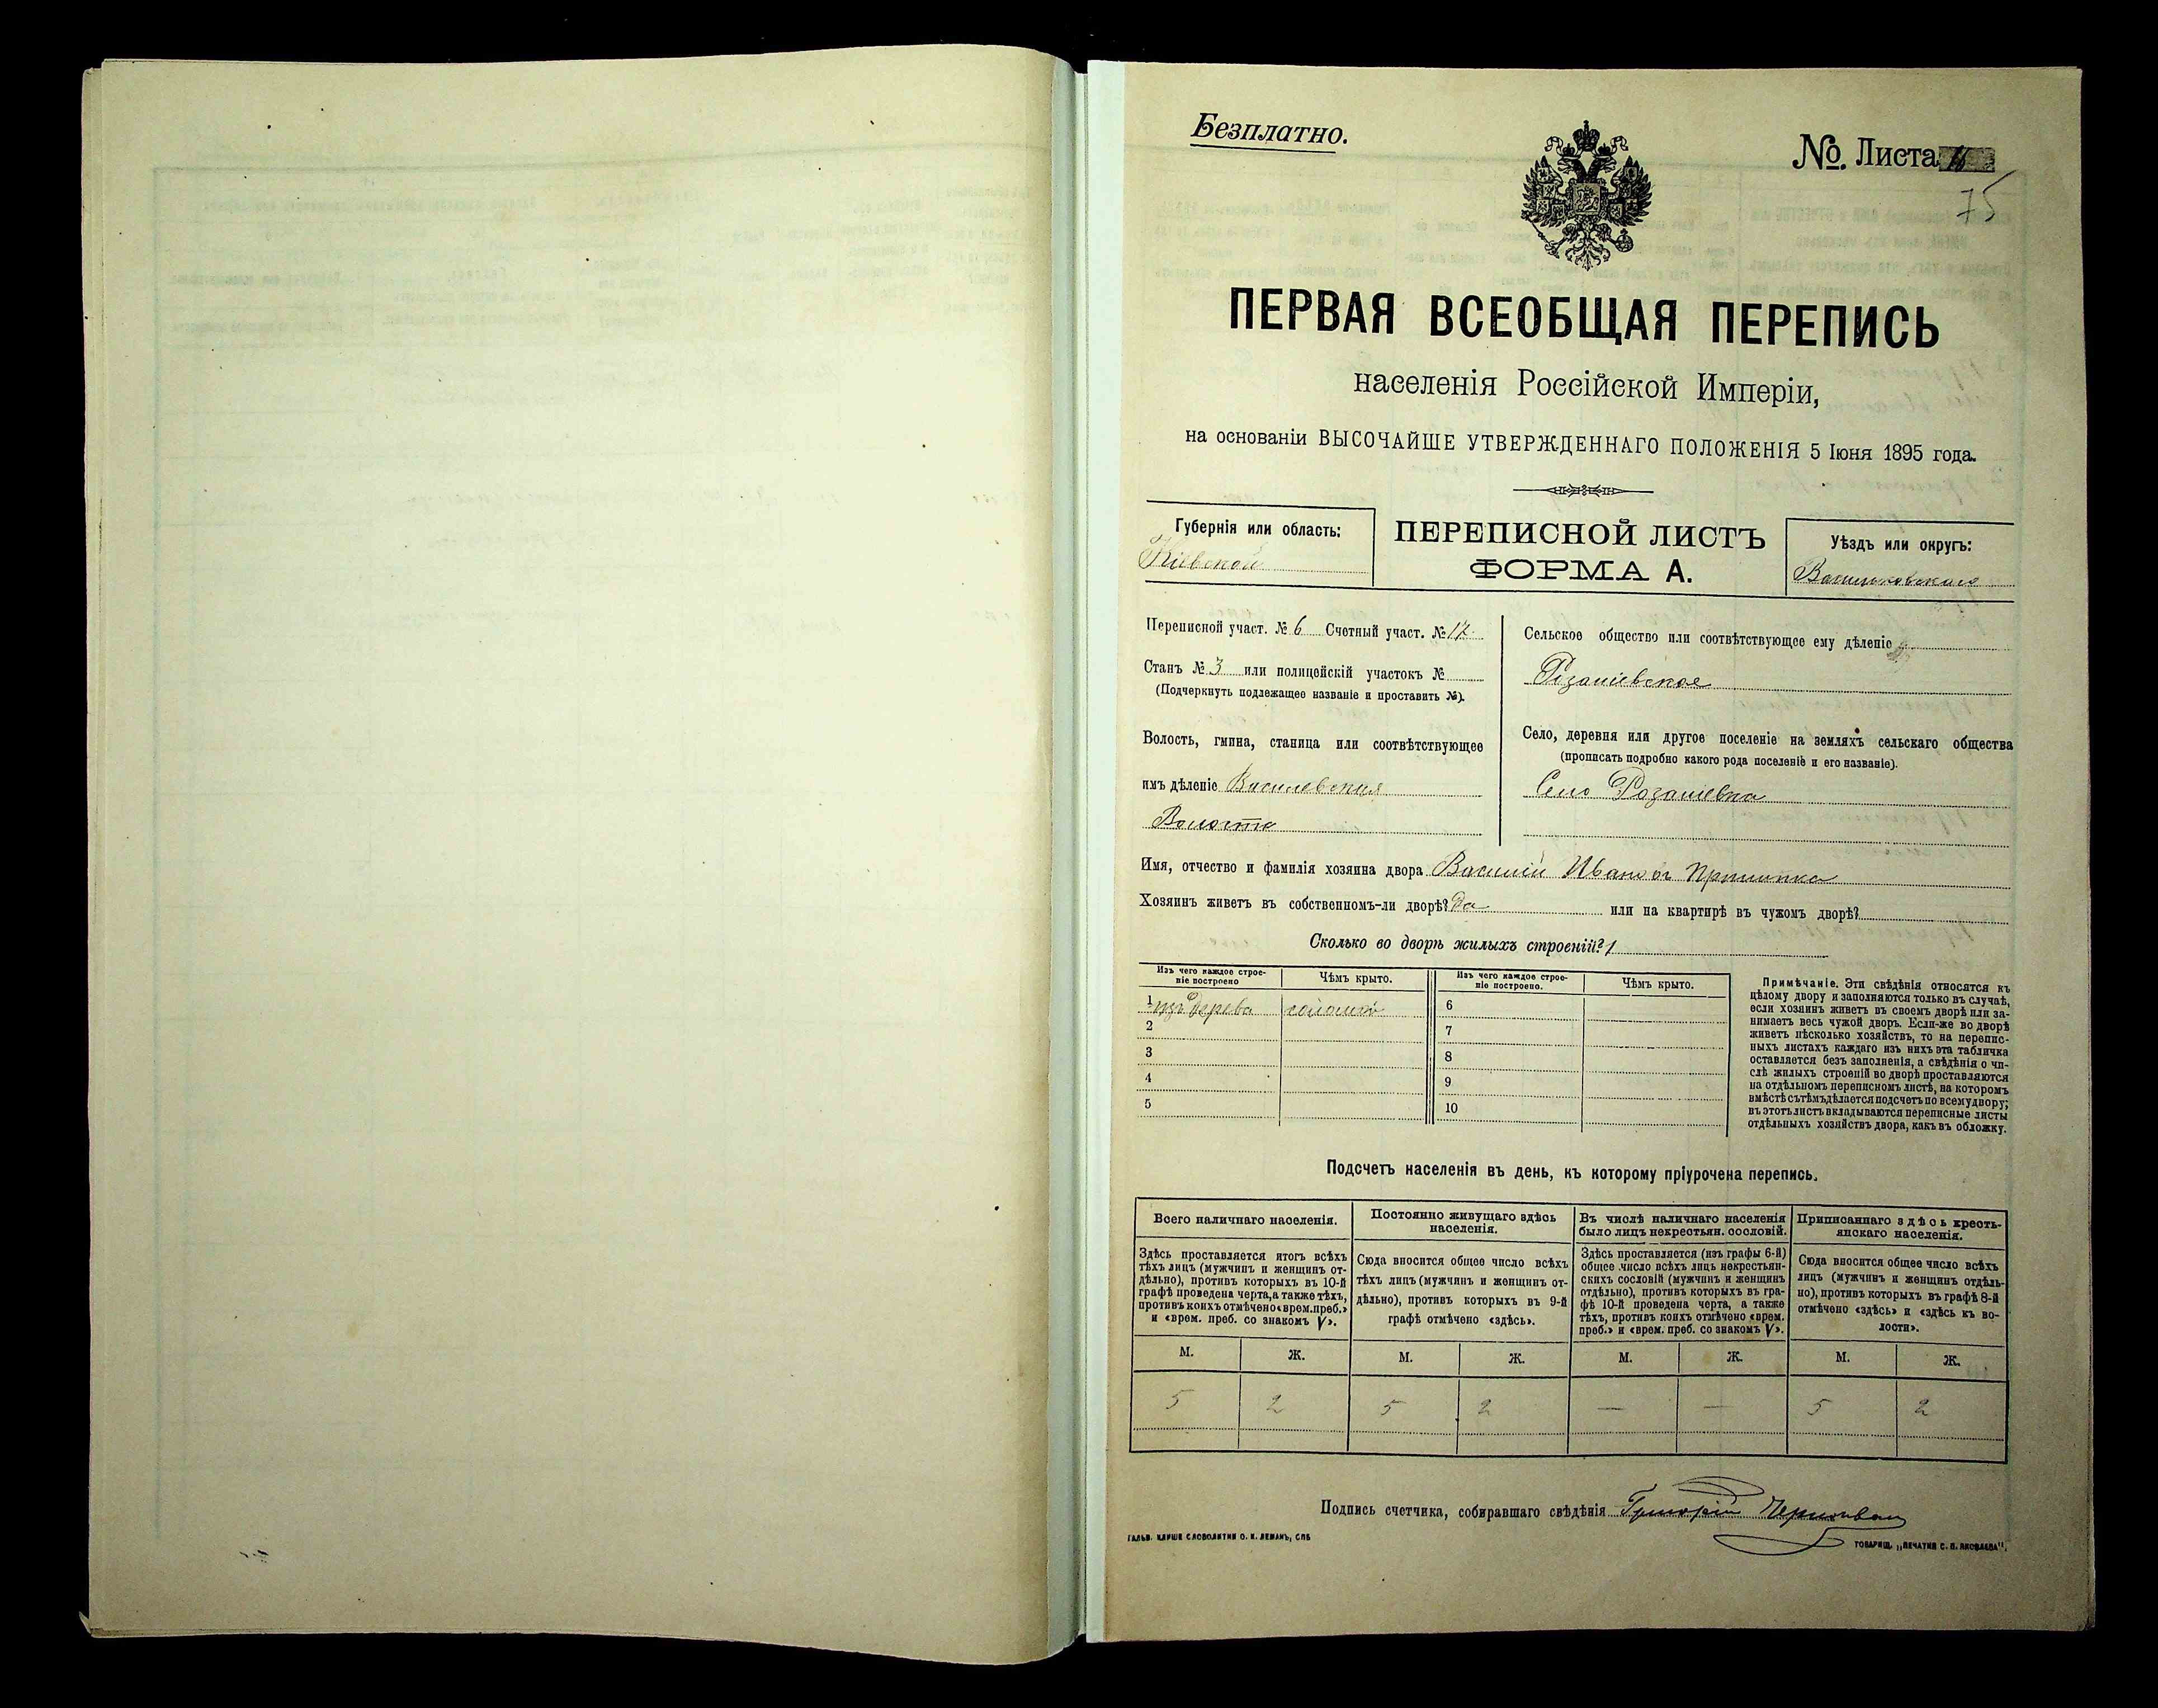 Безплатно.
№. Листа 16
75
ПЕРВАЯ ВСЕОБЩАЯ ПЕРЕПИСЬ
населенія Россійской Имперіи,
на основаніи ВЫСОЧАЙШЕ УТВЕРЖДЕННАГО ПОЛОЖЕНІЯ 5 Іюня 1895 года.
Губернія или область:
Кіевской
ПЕРЕПИСНОЙ ЛИСТЪ
ФОРМА А.
Уѣздъ или округъ:
Васильковскаго
Переписной участ. № 6 Счетный участ. № 17
Станъ № 3 или полицейскій участокъ №
(Подчеркнуть подлежащее названіе и проставить №).
Волость, гмина, станица или соотвѣтствующее
имъ дѣленіе
Волость
Сельское общество или соотвѣтствующее ему дѣленіе
Село, деревня или другое поселеніе на земляхъ сельскаго общества
(прописать подробно какого рода поселеніе и его названіе).
Село
Имя, отчество и фамилія хозяина двора Василій Ивановъ
Хозяинъ живетъ въ собственномъ-ли дворѣ? да или на квартирѣ въ чужомъ дворѣ?
Сколько во дворѣ жилыхъ строеній? 1
Изъ чего каждое строе-
ніе построено
Чѣмъ крыто.
Изъ чего каждое строе-
ніе построено.
Чѣмъ крыто.
1 изъ дерева соломой
2
3
4
5
6
7
8
9
10
Примѣчаніе. Эти свѣдѣнія относятся къ
цѣлому двору и заполняются только въ случаѣ,
если хозяинъ живетъ въ своемъ дворѣ или за-
нимаетъ весь чужой дворъ. Если-же во дворѣ
живетъ нѣсколько хозяйствъ, то на перепис-
ныхъ листахъ каждаго изъ нихъ эта табличка
оставляется безъ заполненія, а свѣдѣнія о чи-
слѣ жилыхъ строеній во дворѣ проставляются
на отдѣльномъ переписномъ листѣ, на которомъ
вмѣстѣ съ тѣмъ дѣлается подсчетъ по всему двору;
въ этотъ листъ вкладываются переписные листы
отдѣльныхъ хозяйствъ двора, какъ въ обложку.
Подсчетъ населенія въ день, къ которому пріурочена перепись.
Всего наличнаго населенія.
Здѣсь проставляется итогъ всѣхъ
тѣхъ лицъ (мужчинъ и женщинъ от-
дѣльно), противъ которыхъ въ 10-й
графѣ проведена черта, а также тѣхъ,
противъ коихъ отмѣчено «врем. преб.»
и «врем. преб. со знакомъ V».
Постоянно живущаго здѣсь
населенія.
Сюда вносится общее число всѣхъ
тѣхъ лицъ (мужчинъ и женщинъ от-
дѣльно), противъ которыхъ въ 9-й
графѣ отмѣчено «здѣсь».
Въ числѣ наличнаго населенія
было лицъ некрестьян. сословій.
Здѣсь проставляется (изъ графы 6-й)
общее число всѣхъ лицъ некрестьян-
скихъ сословій (мужчинъ и женщинъ
отдѣльно), противъ которыхъ въ гра-
фѣ 10-й проведена черта, а также
тѣхъ, противъ коихъ отмѣчено «врем.
преб.» и «врем. преб. со знакомъ V».
Приписаннаго здѣсь кресть-
янскаго населенія.
Сюда вносится общее число всѣхъ
лицъ (мужчинъ и женщинъ отдѣль-
но), противъ которыхъ въ графѣ 8-й
отмѣчено «здѣсь» и «здѣсь къ во-
лости».
М. Ж. М. Ж. М. Ж. М. Ж.
5 2 5 2 — — 5 2
Подпись счетчика, собиравшаго свѣдѣнія Григорій
ГАЛЬВ. КЛИШЕ СЛОВОЛИТНИ О. И. ЛЕМАНЪ, СПБ
ТОВАРИЩ. „ПЕЧАТНЯ С. П. ЯКОВЛЕВА".